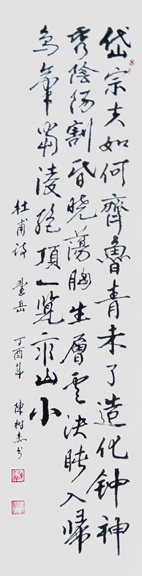 岱宗夫如何齊魯青未了造化钟神
秀陰陽割昏曉蕩胸生層雲決眥入歸
鳥會當凌絕頂一覽众山小
杜甫詩 望岳 丁酉年 陳樹志书